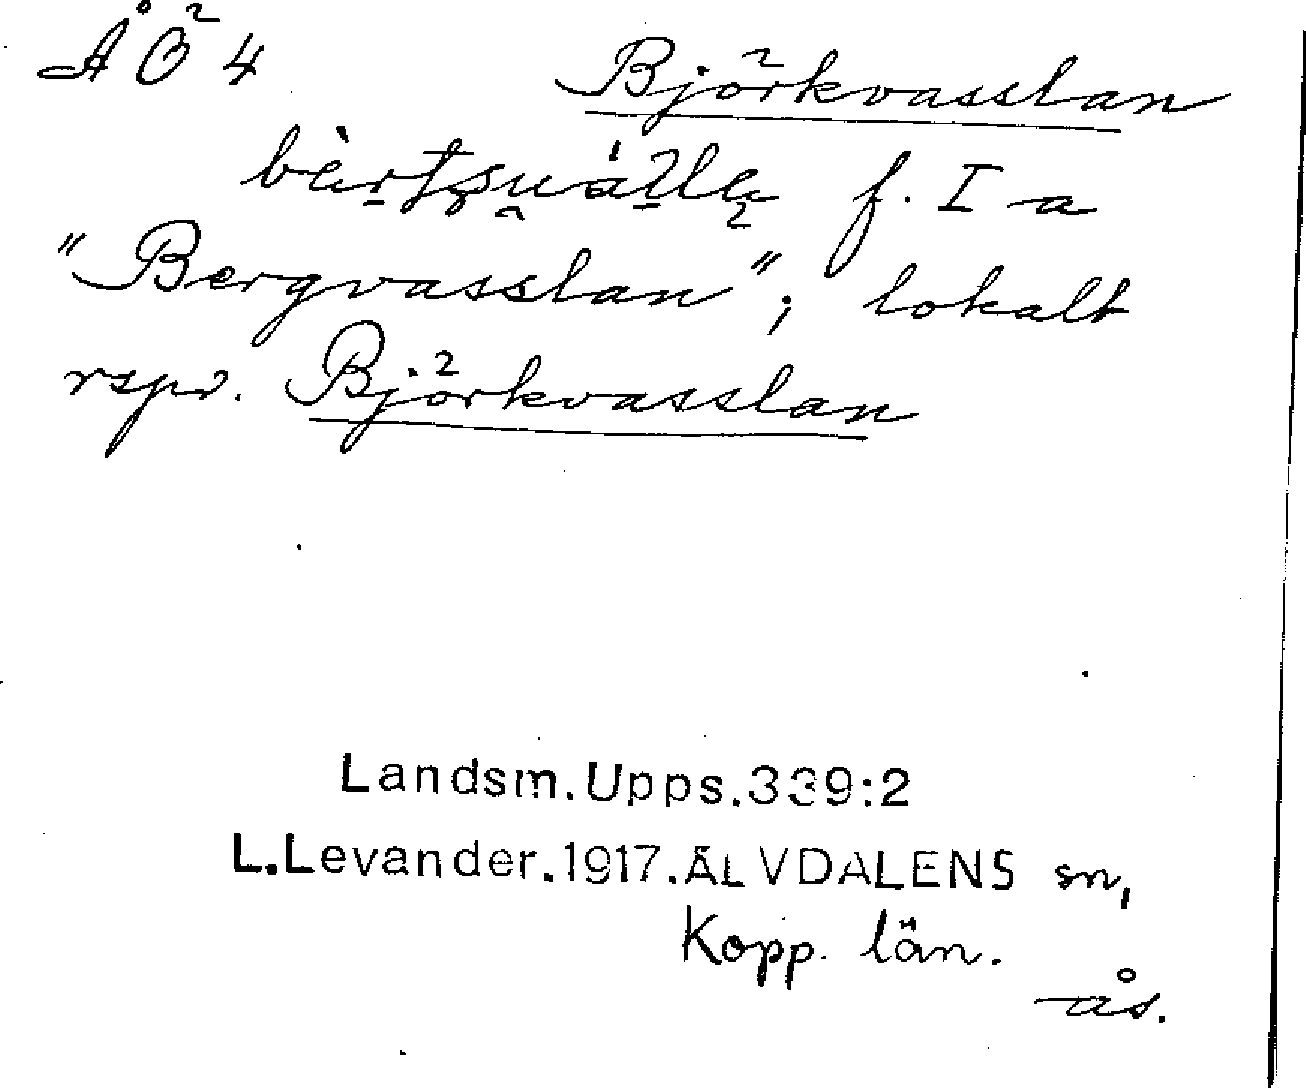 ÅÖ 4
Björkvasslan
f. I a
"Bergvasslan"; lokalt
rspr. Björkvasslan
Landsm.Upps.339:2
L.Levander.1917.ÄLVDALENS sn,
Kopp. län.
ås.